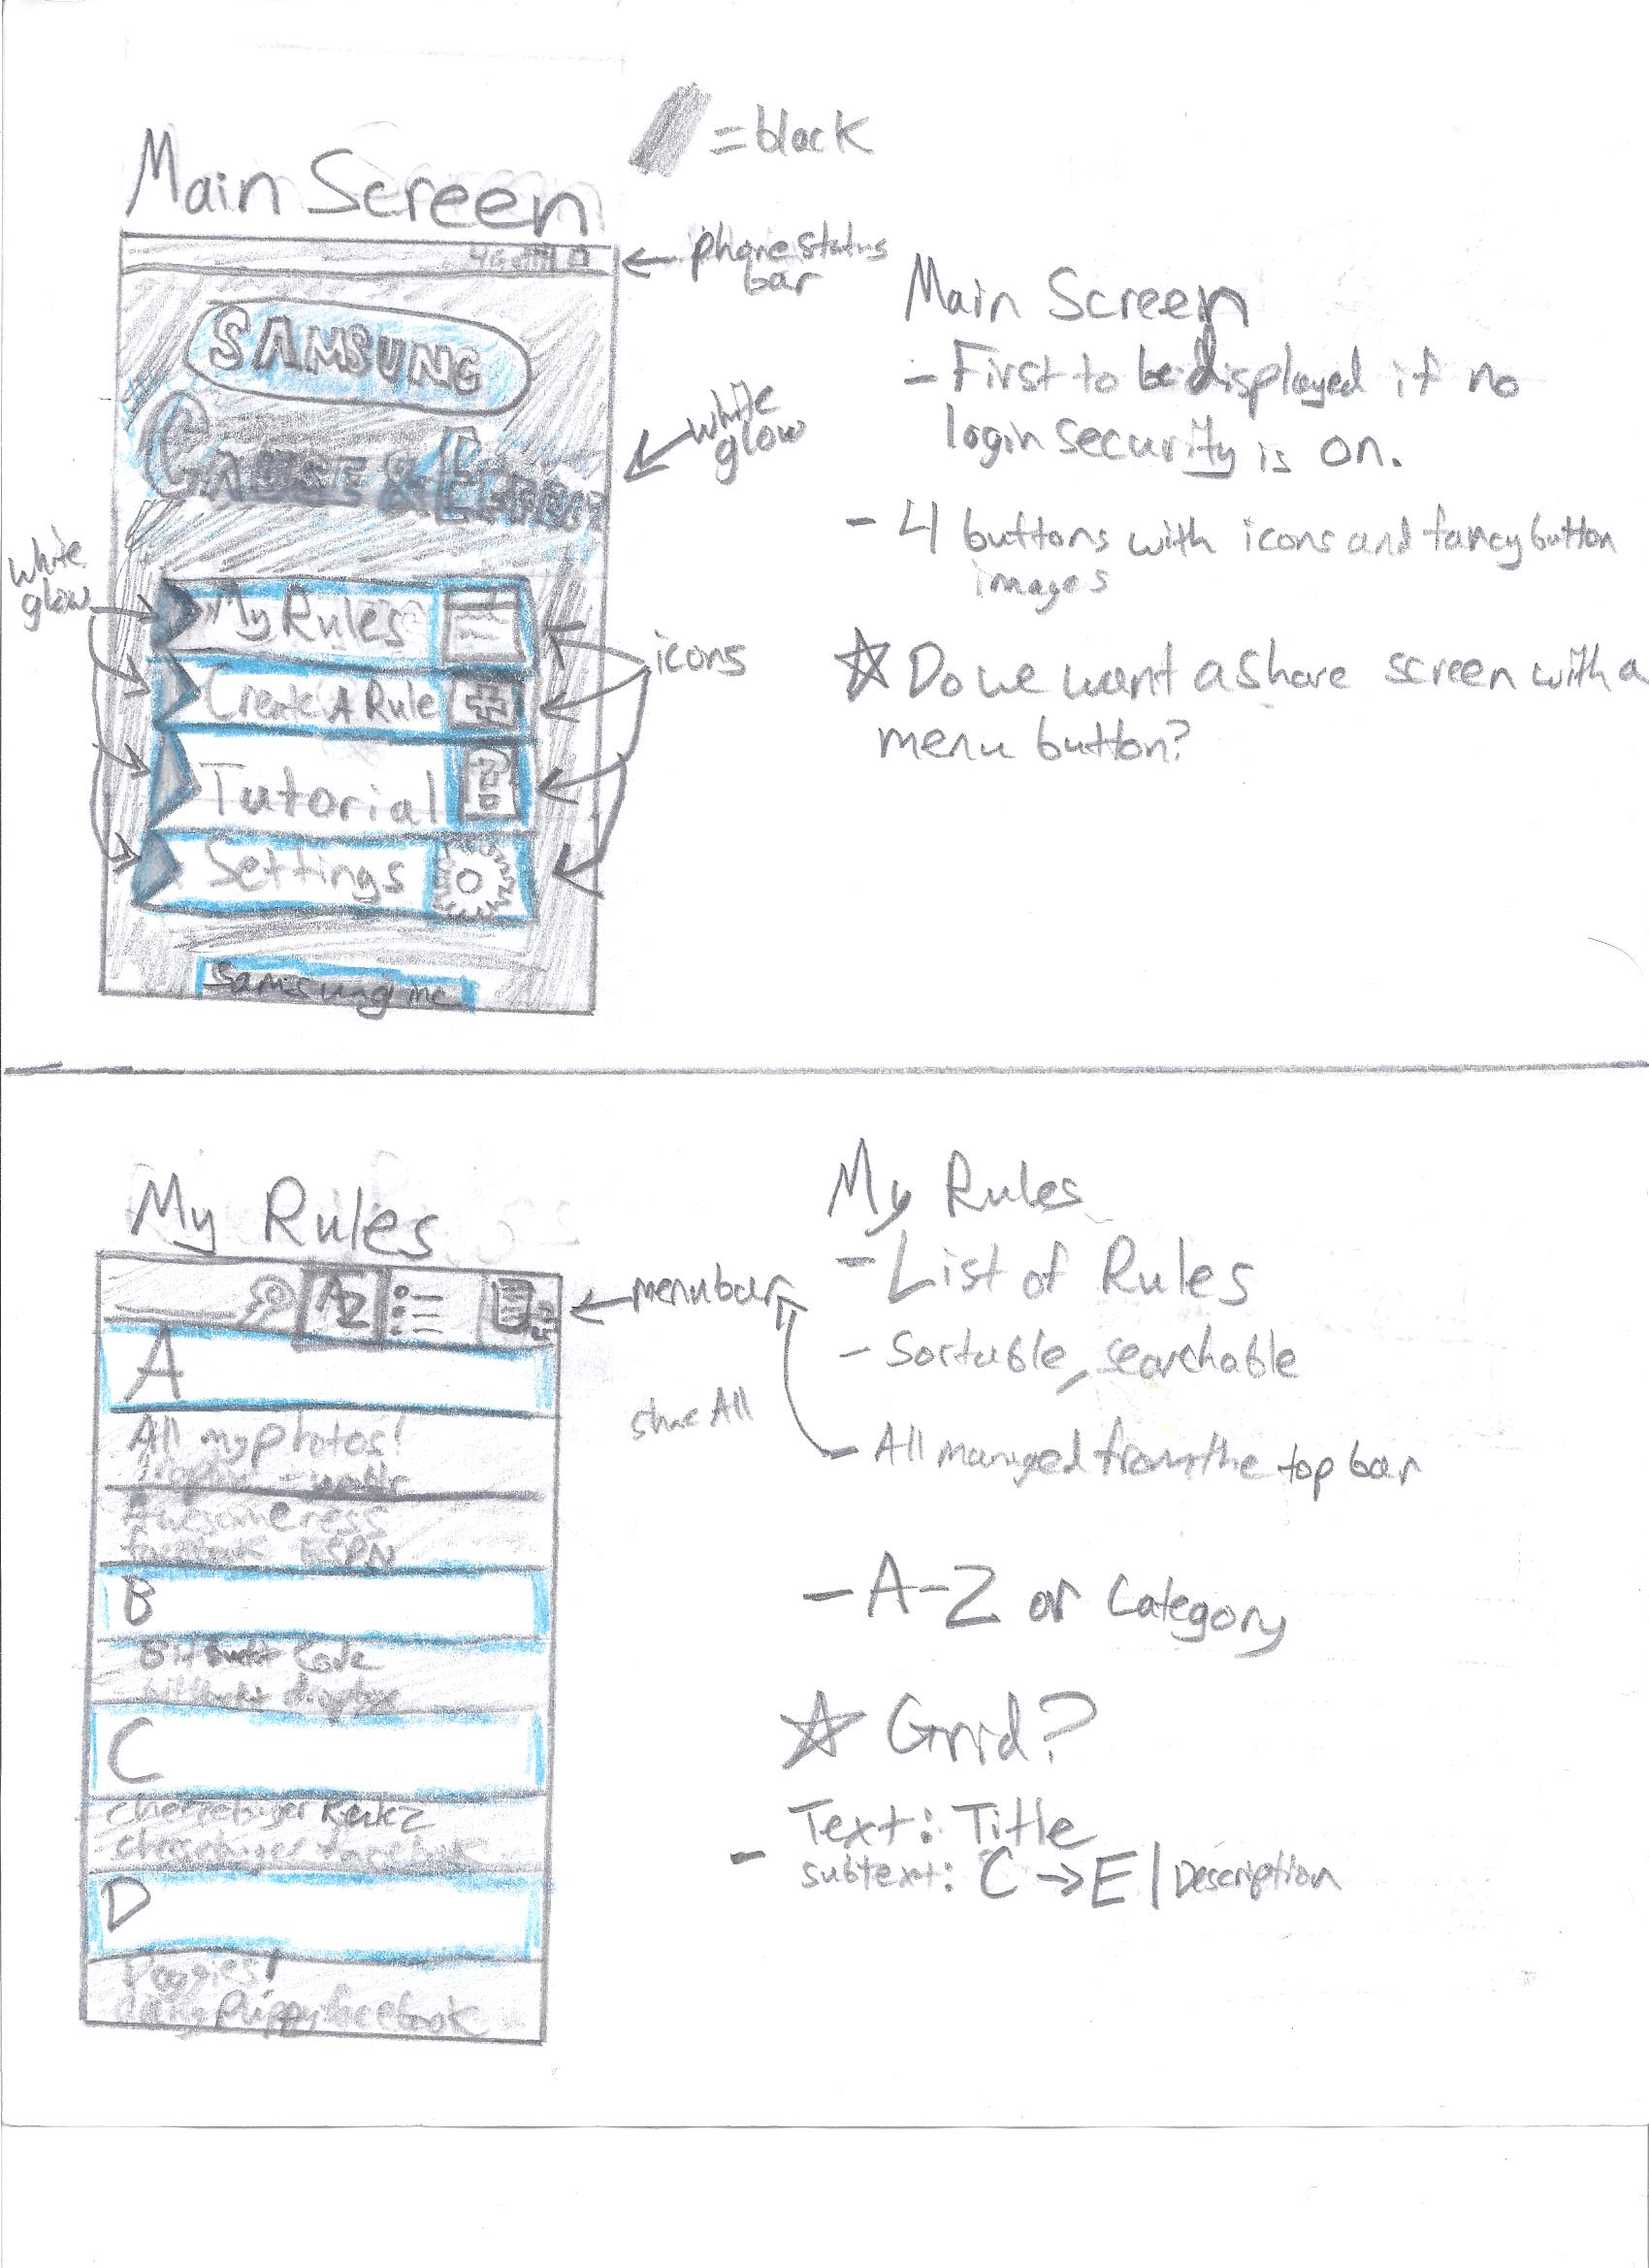 = black
Main Screen
4G
phone status
bar
SAMSUNG
CAUSE & EFFECT
white
glow
white
glow
My Rules
Create A Rule
Tutorial
Settings
icons
Samsung inc
Main Screen
- First to be displayed if no
login security is on.
- 4 buttons with icons and fancy button
images
☆ Do we want a share screen with a
menu button?
My Rules
A
Z
menu bar
A
All my photos!
Awesomeness
facebook ESPN
B
Bitbucket Code
bitbucket dropbox
C
cheezburger Rulez
cheezburger facebook
D
Doggies!
puppy facebook
share All
My Rules
- List of Rules
- Sortable, searchable
- All managed from the top bar
- A-Z or Category
☆ Grid?
- Text: Title
subtext: C → E | Description